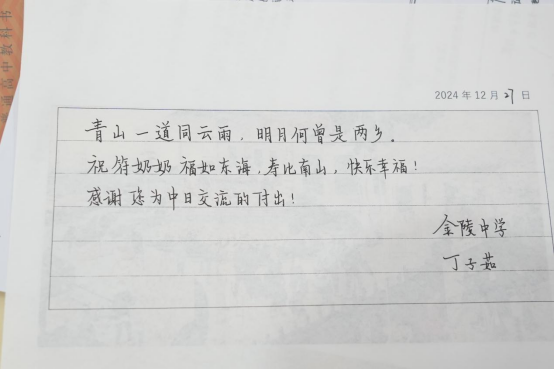 普通高中教科书
2024 年 12 月 27 日
青山一道同云雨，明月何曾是两乡。
祝符奶奶福如东海，寿比南山，快乐幸福！
感谢您为中日交流的付出！
金陵中学
丁子茹